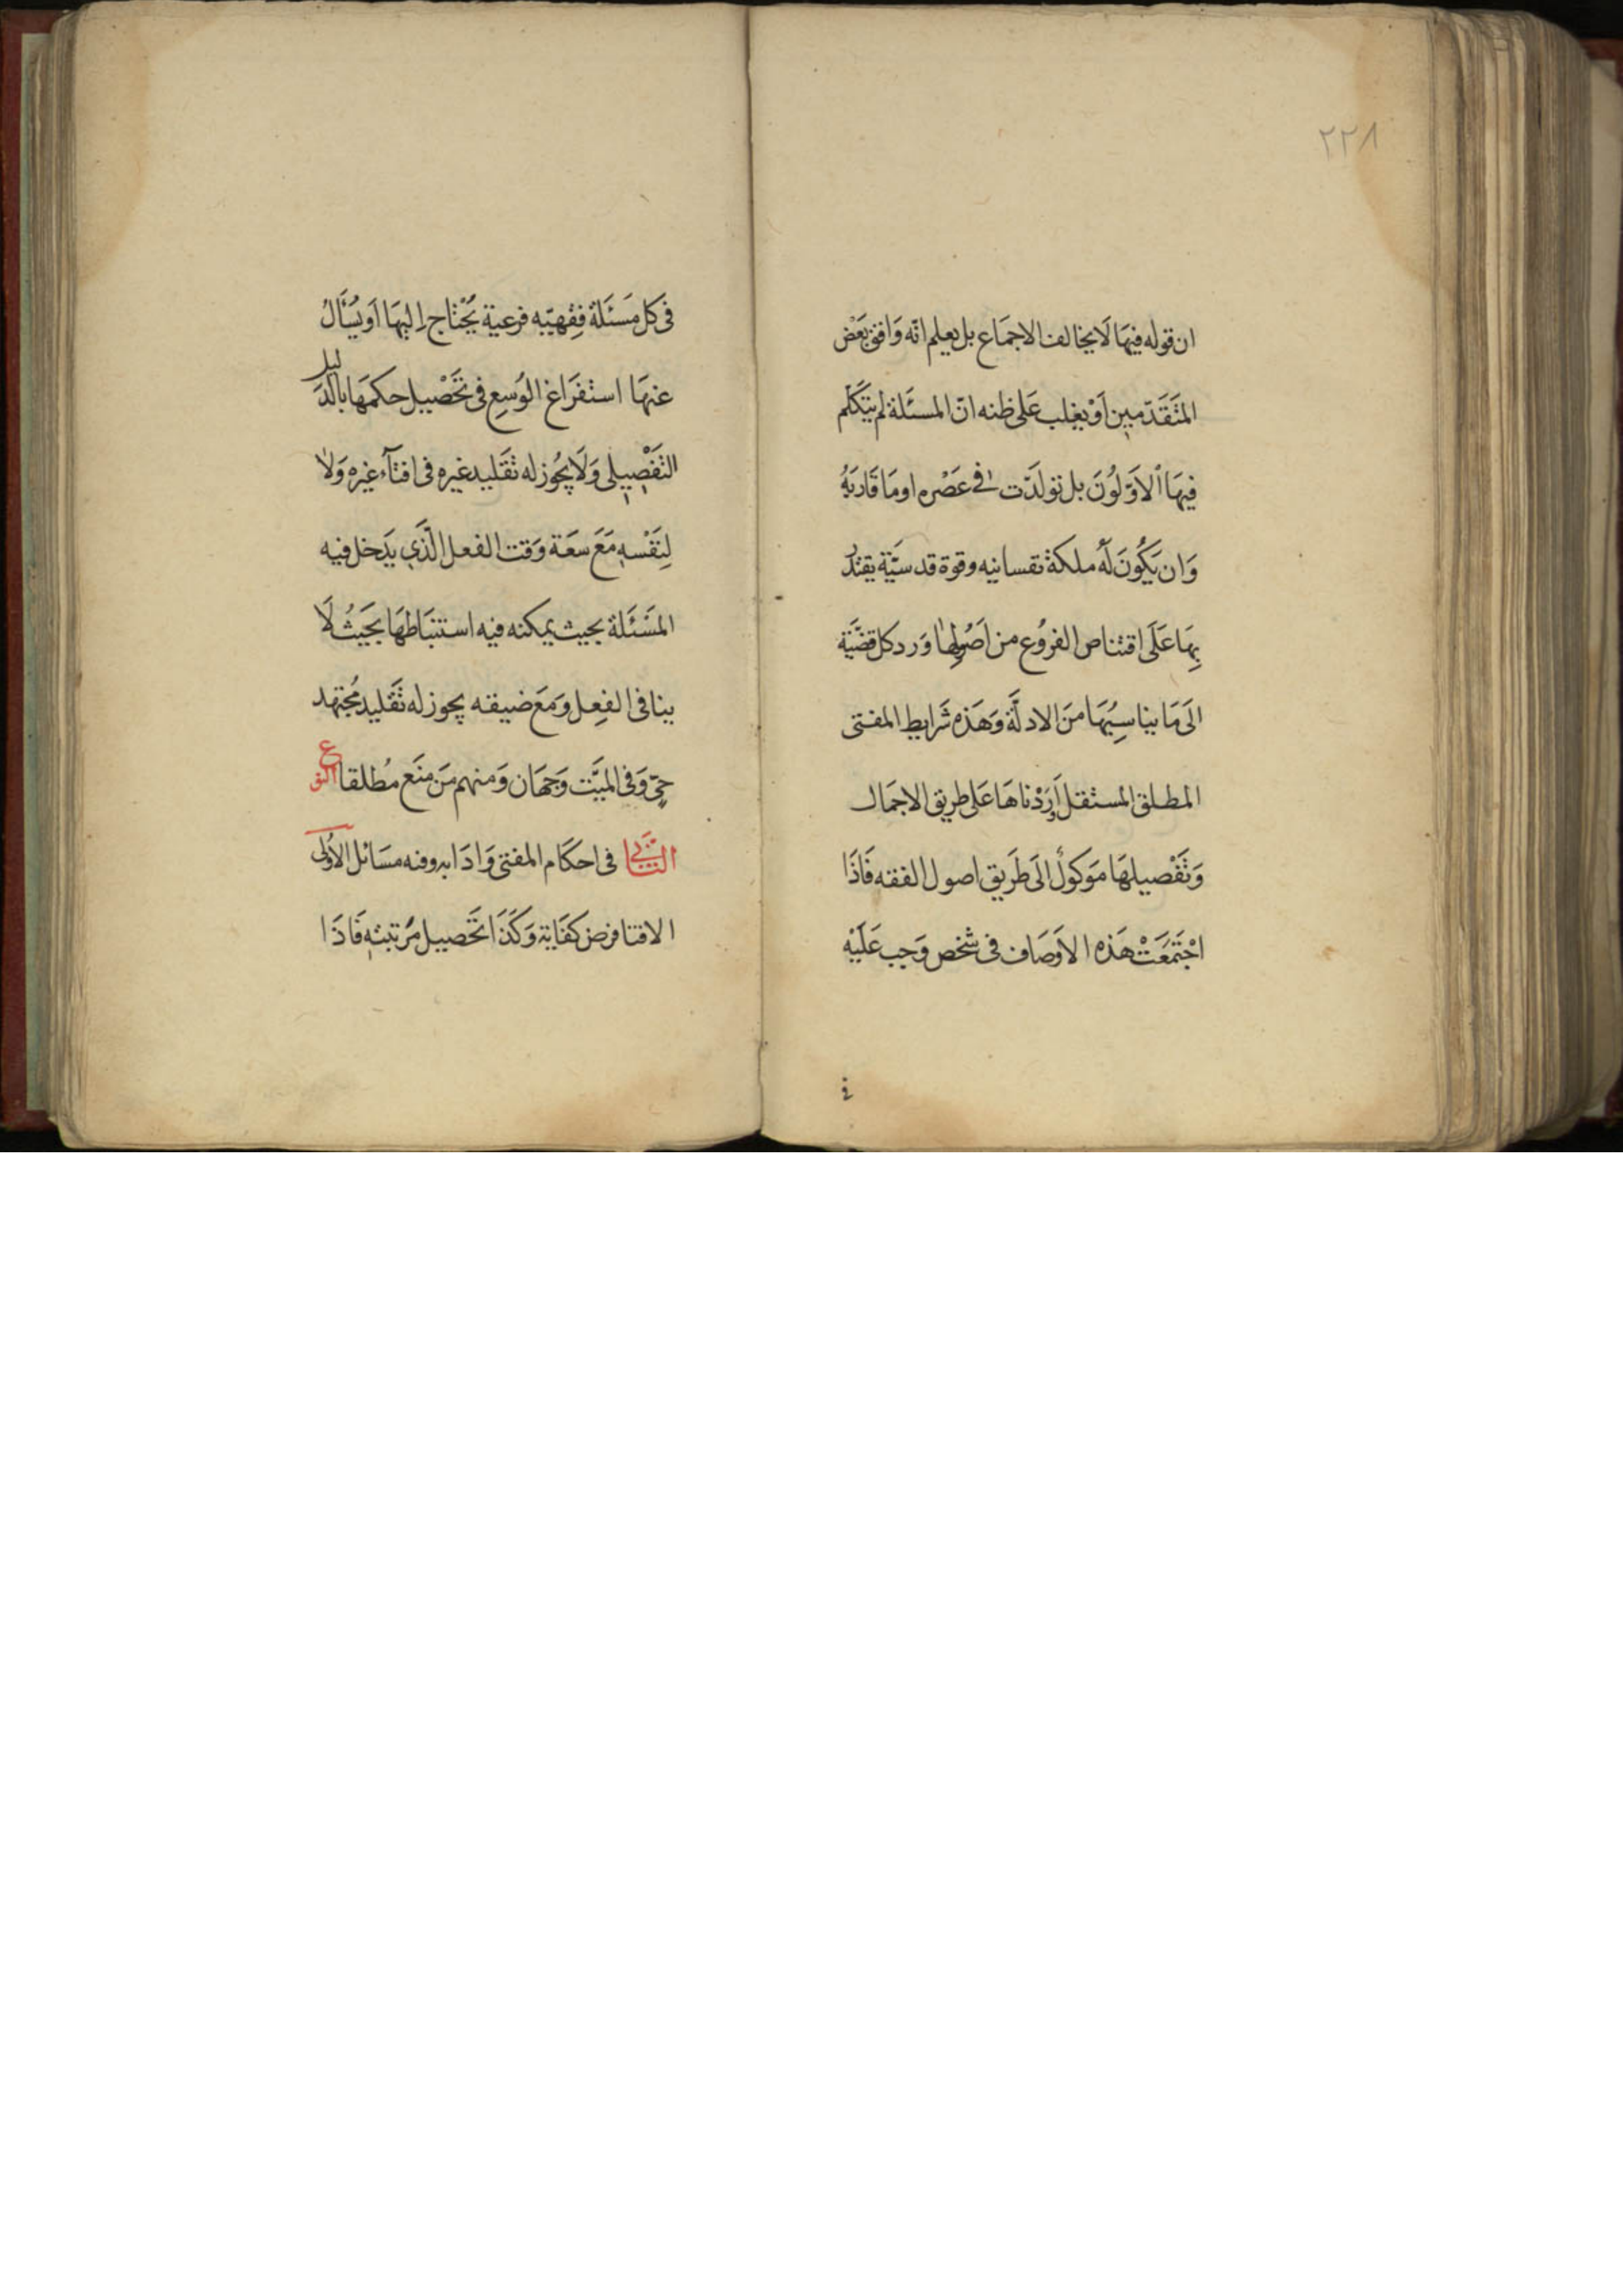 ٢٢٨
ان قوله فيها لَا يخالف الاجمَاع بل يعلم انّه وَافق بَعْض
المتَقَدّمين اَوْ يغلب عَلى ظنه انّ المسئلة لم يتَكَلم
فيهَا الاَوّلوُنَ بل تولدَت فے عَصْره او مَا قَاربَهُ
وَان يَكُونَ لَهُ ملكة نفسانيه وقوة قدسيَّة يقتدر
بِهَا عَلَى اقتناص الفروُع من اصُولِها وَرد كل قضيَّة
الَى مَا يناسِبُهَا منَ الادلَّة وَهَذه شَرايط المفتى
المطلق المستقل اَورَدْناهَا عَلى طريق الاجمَال
وَتَفْصيلهَا مَوكولٌ الَى طَريق اصول الفقه فَاذَا
اجْتَمَعَتْ هَذه الاَوصَاف فى شخص وَجب عَلَيْه
فى
فى كل مَسئَلة فِقهيّه فرعية يُحْتاج اِليهَا اَو يُسْأَلُ
عنهَا استفرَاغ الوُسعِ فى تَحْصيل حكمهَا بالدَليل
التفَصْيِلى وَلَا يجُوز له تقَليد غيره فى افتآء غيره وَلا
لِنَفْسهِ مَعَ سعَة وَقت الفعل الّذَى يَدخل فيه
المسَئَلة بحيث يمكنه فيه استنبَاطهَا بحَيثُ لَا
ينافى الفِعل وَمَعَ ضيقه يجوز له تَقليد مُجتهد
حىّ وَفى الميَّت وَجهَان وَمنهم مَن منَع مُطلقا النوع
الثَّانِى فى احكَام المفتى وَادَابه وفيه مسَائل الاُولى
الافتا فرض كفَاية وَكَذَا تَحصيل مَرتبتهِ فَاذَا